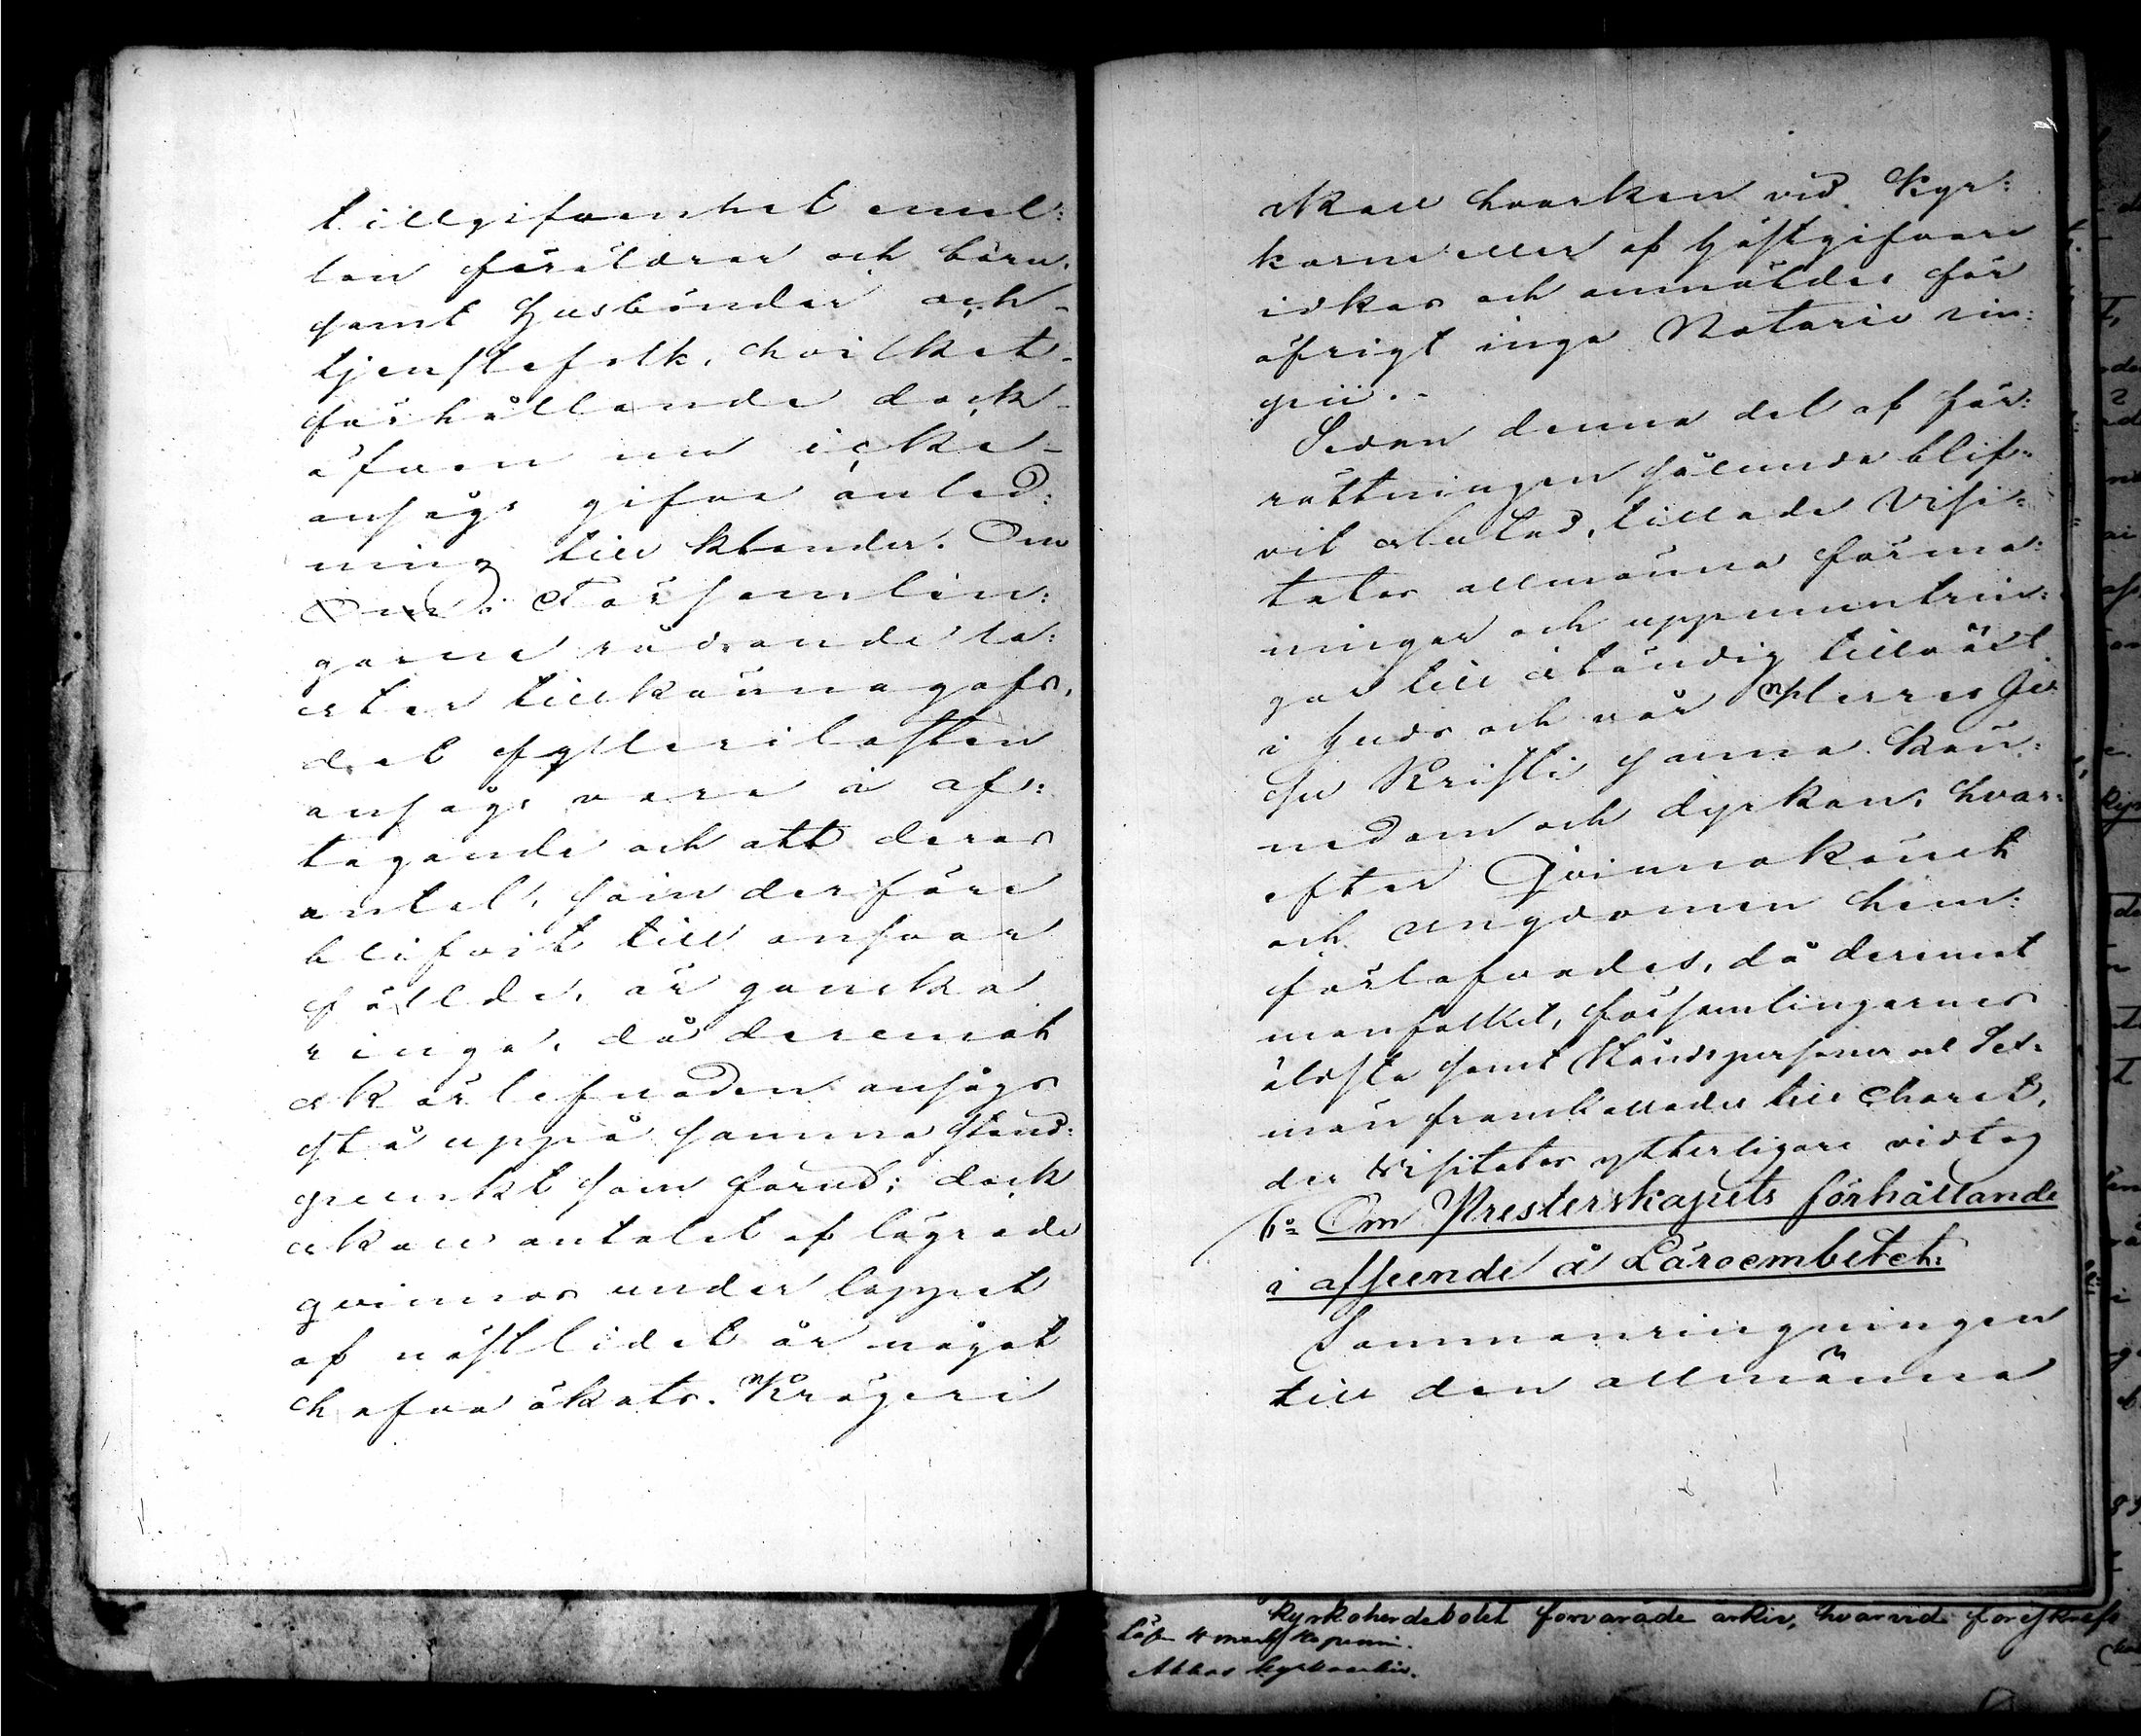 tillgifvenhet emel:
lan föräldrar och barn,
samt Husbönder och
tjenstefolk, hvilket
förhållande dock
äfven nu icke
ansågs gifva anled:
ning till klander. Om
Om i Församlin:
garne rådande la:
ster tillkännagafs,
det fyllerilasten
ansågs vara i af:
tagande och att deras
antal, som derföre
blifvit till ansvar
fällde, är ganska
ringa, då deremot
skörlefnaden ansågs
stå uppå samma stånd:
punkt som förut; dock
skall antalet af lägrade
qvinnor under loppet
af nästlidet år något
hafva ökats. Krögeri
skall hvarken vid Kyr:
korne eller af Gästgifvare
idkas och anmäldes för
öfrigt inga Notorie rin:
gii.
Sedan denna del af för:
rättningen sålunda blif:
vit slutad, tillade Visi:
tator allmänna förma:
ningar och uppmuntrin:
gar till ständig tillväxt
i Guds och vår Herres Je:
su Kristi sanna kän:
nedom och dyrkan, hvar:
efter Qvinnokönet
och ungdomen hem:
förlofvades, då deremot
manfolket, församlingarnes
äldste samt Ståndspersoner och Sex:
män framkallades till Choret,
der Visitator ytterligare vidtog
6o Om Presterskapets förhållande
i afseende å Läroembetet:
Sammanringningen
till den allmänna
kyrkoherdebolet förvarade arkiv, hvarvid föreskrefs
kyrkoarkiv.